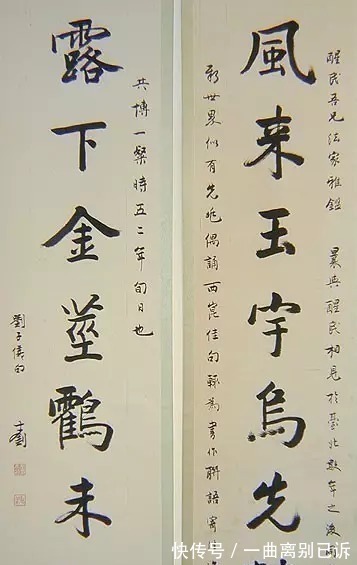 醒民吾兄法家雅鑑 曩與醒民相見於臺北數年之後
風来玉宇烏先
新世界似有先兆偶誦西崑佳句輒為書作聯語寄
共博一粲時五二年旬日也
露下金莖鸖未
快传号／一曲离别已诉